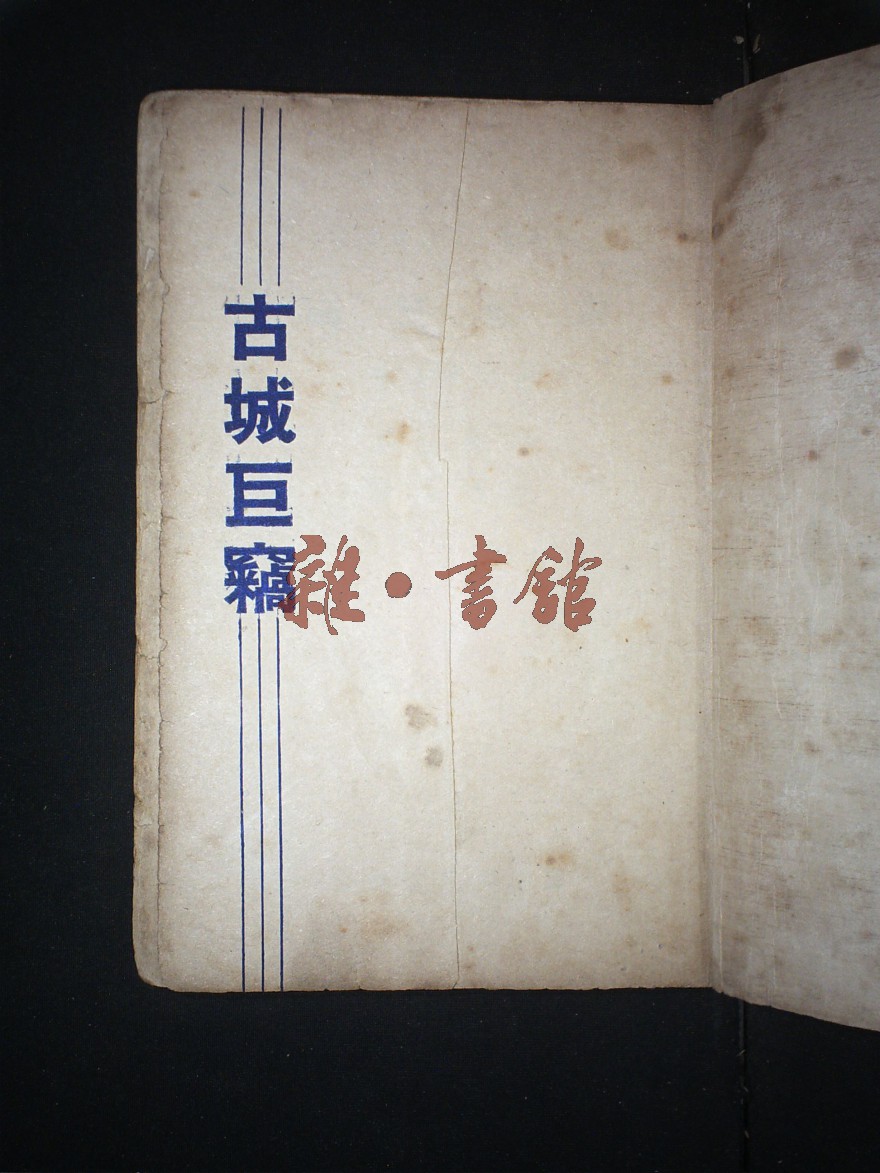 古城巨竊
雜·書館